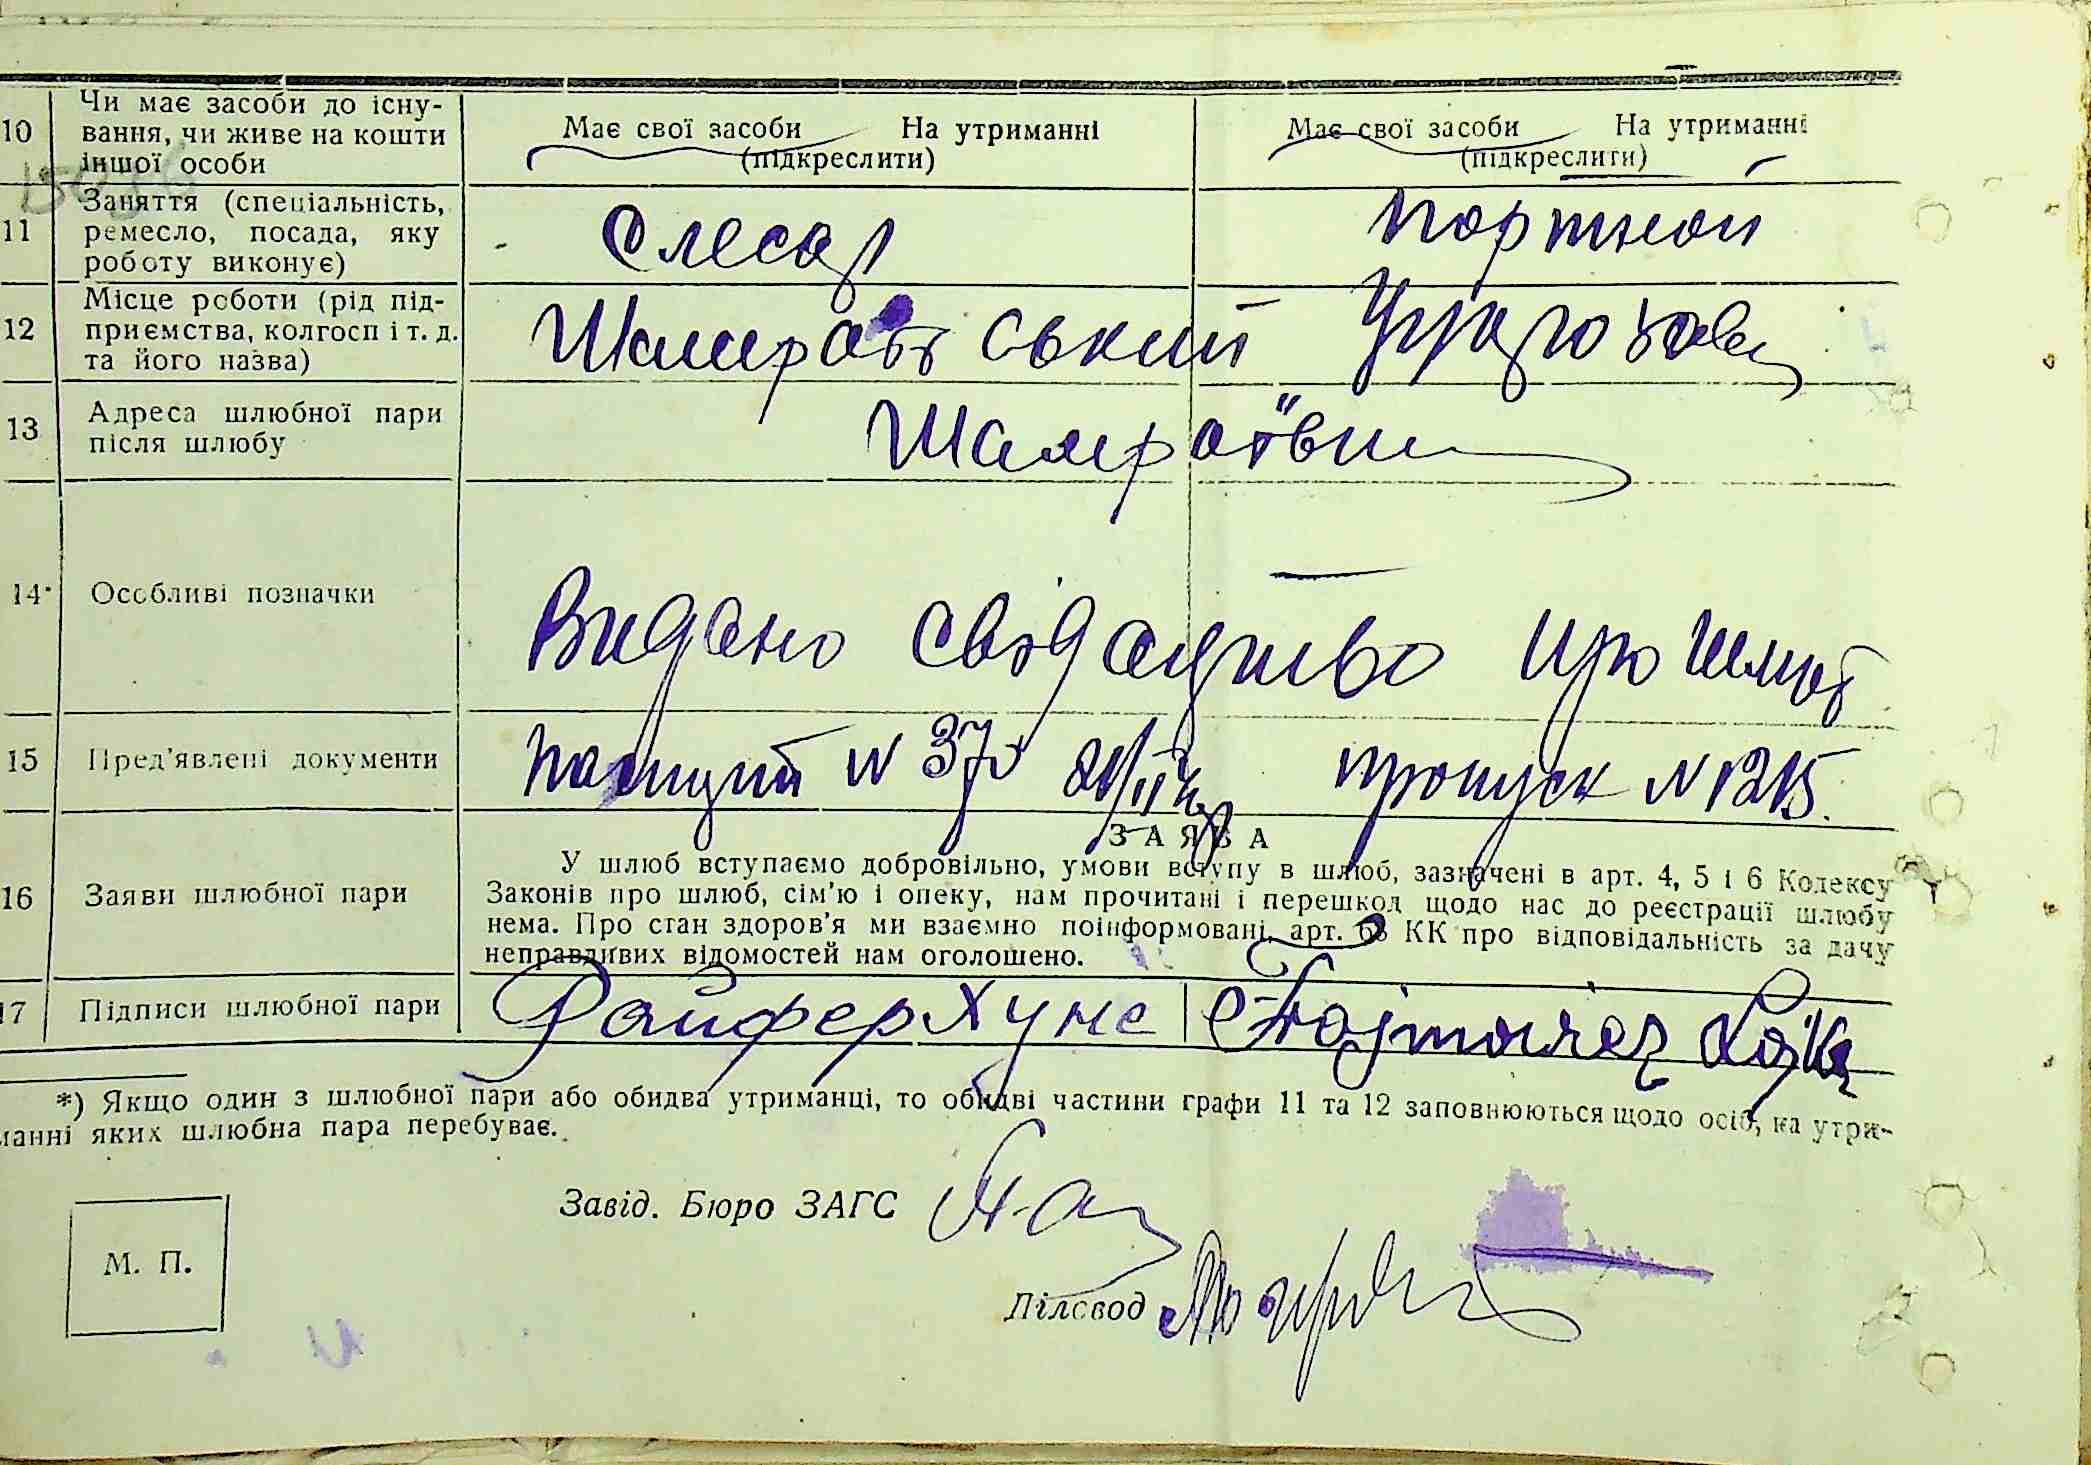 10 Чи має засоби до існу-
вання, чи живе на кошти
іншої особи
Має свої засоби На утриманні
(підкреслити)
Має свої засоби На утриманні
(підкреслити)
11 Заняття (спеціальність,
ремесло, посада, яку
роботу виконує)
Слесар
Портной
12 Місце роботи (рід під-
приємства, колгосп і т. д.
та його назва)
Шамраївський Цукрозавод
13 Адреса шлюбної пари
після шлюбу
Шамраївка
14 Особливі позначки
Видано свідацтво про шлюб
15 Пред'явлені документи
пашпорт N 370
пропуск N 1215.
16 Заяви шлюбної пари
ЗАЯВА
У шлюб вступаємо добровільно, умови вступу в шлюб, зазначені в арт. 4, 5 і 6 Кодексу
Законів про шлюб, сім'ю і опеку, нам прочитані і перешкод щодо нас до реєстрації шлюбу
нема. Про стан здоров'я ми взаємно поінформовані, арт. 68 КК про відповідальність за дачу
неправдивих відомостей нам оголошено.
17 Підписи шлюбної пари
Файфер Хуне
*) Якщо один з шлюбної пари або обидва утриманці, то обидві частини графи 11 та 12 заповнюються щодо осіб, на утри-
манні яких шлюбна пара перебуває.
Завід. Бюро ЗАГС
М. П.
Діловод